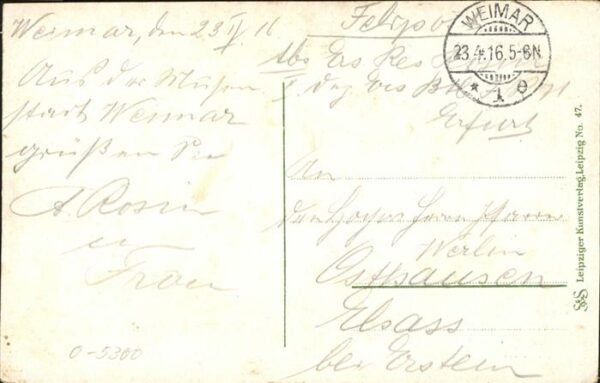 Weimar, den 23 IV 16
Aus der Musen
stadt Weimar
grüßen Sie
A. Rosin
u
Frau
0-5300
Feldpost
Abs Ers Res
Erfurt
WEIMAR
23.4.16.5-6N
* 1 e
An
den Herrn Pfarrer
Werlin
Osthausen
Elsass
bei Erstein
S&S Leipziger Kunstverlag, Leipzig No. 47.